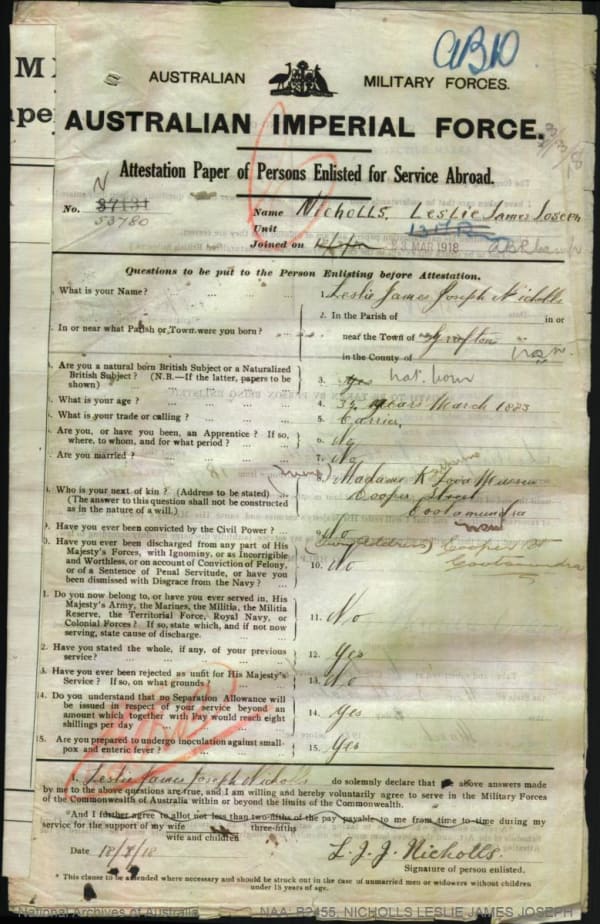 ABD
AUSTRALIAN MILITARY FORCES.
AUSTRALIAN IMPERIAL FORCE.
Attestation Paper of Persons Enlisted for Service Abroad.
N
No. 34131
53780
Name Nicholls, Leslie James Joseph
Unit
Joined on 23 MAR 1918
Questions to be put to the Person Enlisting before Attestation.
What is your Name? ... 1. Leslie James Joseph Nicholls
In or near what Parish or Town were you born? ... 2. In the Parish of in or
near the Town of Grafton
in the County of N.S.W.
Are you a natural born British Subject or a Naturalized
British Subject? (N.B.—If the latter, papers to be
shown) 3. Yes nat. born
What is your age? 4. 35 years March 1883
What is your trade or calling? 5. Carrier
Are you, or have you been, an Apprentice? If so,
where, to whom, and for what period? 6. No
Are you married? 7. No
Who is your next of kin? (Address to be stated) 8. (Friend) Madame K
Cooper Street
Cootamundra
NSW
(The answer to this question shall not be constructed
as in the nature of a will.)
9. Have you ever been convicted by the Civil Power? ... 9. No
Cooper St
Cootamundra
0. Have you ever been discharged from any part of His
Majesty's Forces, with Ignominy, or as Incorrigible
and Worthless, or on account of Conviction of Felony,
or of a Sentence of Penal Servitude, or have you
been dismissed with Disgrace from the Navy? ... 10. No
1. Do you now belong to, or have you ever served in, His
Majesty's Army, the Marines, the Militia, the Militia
Reserve, the Territorial Force, Royal Navy, or
Colonial Forces? If so, state which, and if not now
serving, state cause of discharge. 11. No
2. Have you stated the whole, if any, of your previous
service? 12. Yes
3. Have you ever been rejected as unfit for His Majesty's
Service? If so, on what grounds? 13. No
14. Do you understand that no Separation Allowance will
be issued in respect of your service beyond an
amount which together with Pay would reach eight
shillings per day 14. Yes
15. Are you prepared to undergo inoculation against small-
pox and enteric fever? 15. Yes
I, Leslie James Joseph Nicholls do solemnly declare that the above answers made
by me to the above questions are true, and I am willing and hereby voluntarily agree to serve in the Military Forces
of the Commonwealth of Australia within or beyond the limits of the Commonwealth.
*And I further agree to allot not less than two-fifths of the pay payable to me from time to time during my
three-fifths
service for the support of my wife
wife and children
Date 18/3/18 L. J. J. Nicholls.
Signature of person enlisted.
* This clause to be amended where necessary and should be struck out in the case of unmarried men or widowers without children
under 18 years of age.
National Archives of Australia NAA: B2455, NICHOLLS LESLIE JAMES JOSEPH